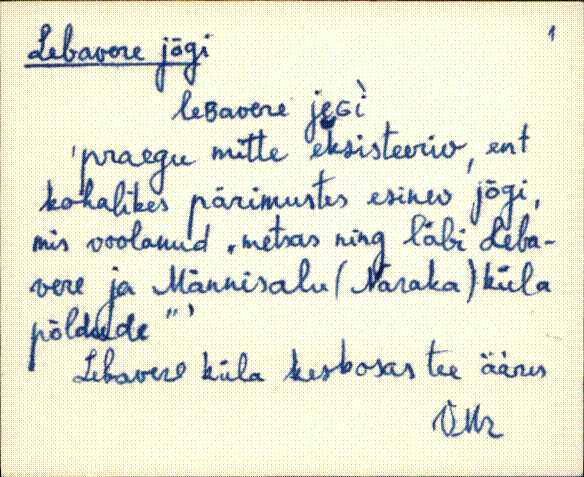 Lebavere jõgi 1
leBavere jeGì
'praegu mitte eksisteeriv, ent
kohalikes pärimustes esinev jõgi,
mis voolanud „metsas ning läbi Leba-
vere ja Männisalu (Naraka) küla
põldude"'
Lebavere küla keskosas tee ääres
VMz